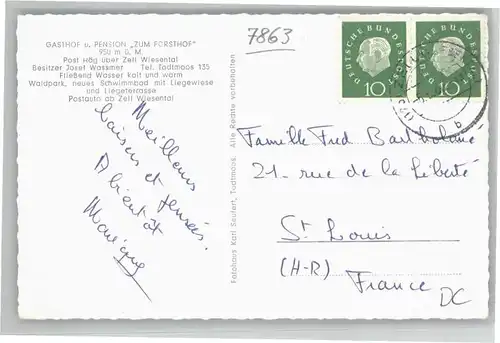 7863
GASTHOF u. PENSION „ZUM FORSTHOF"
950 m ü. M.
Post Häg über Zell Wiesental
Besitzer Josef Wassmer Tel. Todtmoos 135
Fließend Wasser kalt und warm
Waldpark, neues Schwimmbad mit Liegewiese
und Liegeterrasse
Postauto ab Zell Wiesental
Meilleurs
baisers et
pensées.
A bientôt
Fotohaus Karl Seufert, Todtmoos. Alle Rechte vorbehalten
DEUTSCHE BUNDESPOST
10
DEUTSCHE BUNDESPOST
10
b
Famille Fred Bartholane
21- rue de la Liberté
St Louis
(H-R)
France
DC